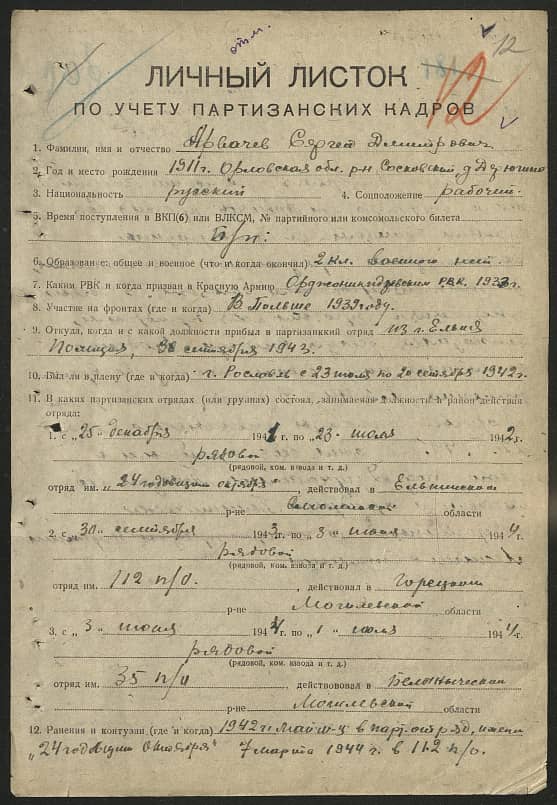 отм.
12
12
ЛИЧНЫЙ ЛИСТОК
ПО УЧЕТУ ПАРТИЗАНСКИХ КАДРОВ
1. Фамилия, имя и отчество Арвачев Сергей Димитрович
2. Год и место рождения 1911 г. Орловская обл. р-н Сосковский д.
3. Национальность русский 4. Соцположение рабочий
5. Время поступления в ВКП(б) или ВЛКСМ, № партийного или комсомольского билета
б/п.
6. Образование: общее и военное (что и когда окончил) 2 кл. военного нет.
7. Каким РВК и когда призван в Красную Армию Орджоникидзевским РВК. 1933 г.
8. Участие на фронтах (где и когда) В Польше 1939 году.
9. Откуда, когда и с какой должности прибыл в партизанкий отряд из г. Ельня
Полиция, 30 сентября 1943.
10. Был ли в плену (где и когда) г. Рославль с 23 июля по 20 сентября 1942 г.
11. В каких партизанских отрядах (или группах) состоял, занимаемая должность и район действия
отряда:
1. с „25" декабря 1941 г. по „23" июля 1942 г.
рядовой
(рядовой, ком. взвода и т. д.)
отряд им. „24 годовщины октября", действовал в Ельнинском
р-не Смоленской области
2. с „30" сентября 1943 г. по „3" июня 1944 г.
рядовой
(рядовой, ком. взвода и т. д.)
отряд им. 112 п/о., действовал в Горецком
р-не Могилевской области
3. с „3" июня 1944 г. по „1" июля 1944 г.
рядовой
(рядовой, ком. взвода и т. д.)
отряд им. 35 п/о, действовал в Белыническом
р-не Могилевской области
12. Ранения и контузии (где и когда) 1942 г. май м-ц в парт. отряд, имени
„24 годовщин октября" 7 марта 1944 г. в 112 п/о.